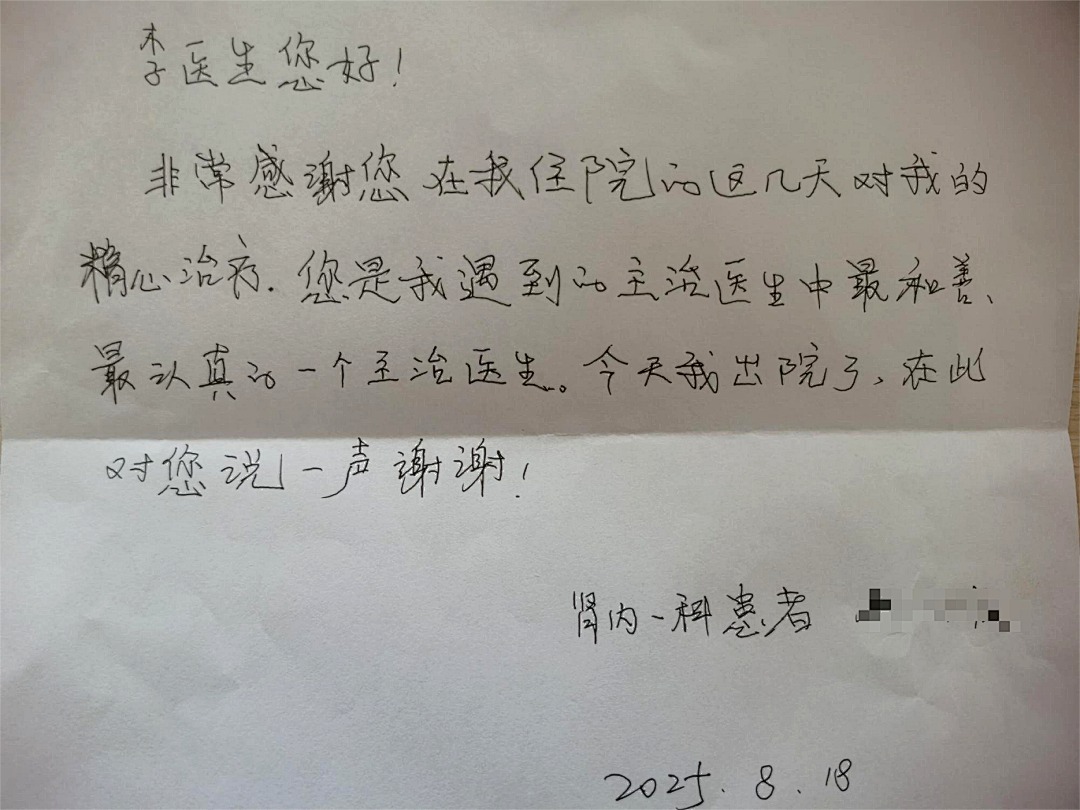 李医生您好！
非常感谢您在我住院的这几天对我的
精心治疗.您是我遇到的主治医生中最和善、
最认真的一个主治医生。今天我出院了、在此
对您说一声谢谢！
肾内一科患者
2025.8.18